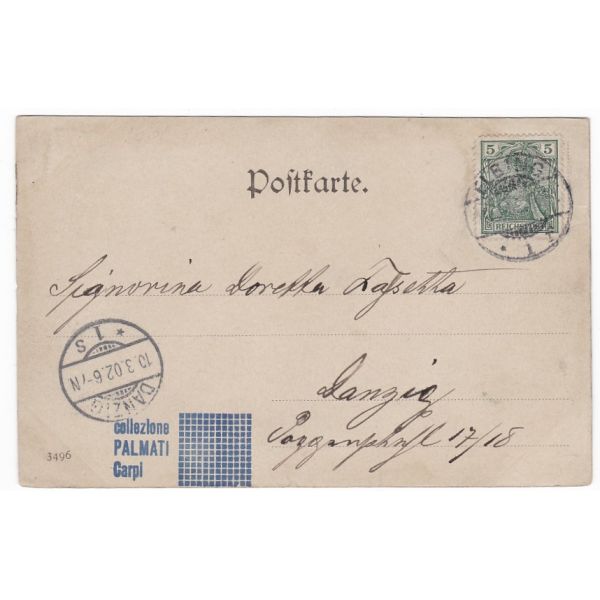 5 5
REICHSPOST
ELBING
* 1 f
Postkarte.
Signorina Doretta Lasetta
Danzig
Poggenpfuhl 17/18
DANZIG
10.3.02.6-7N
* 1 S
collezione
PALMATI
Carpi
3496